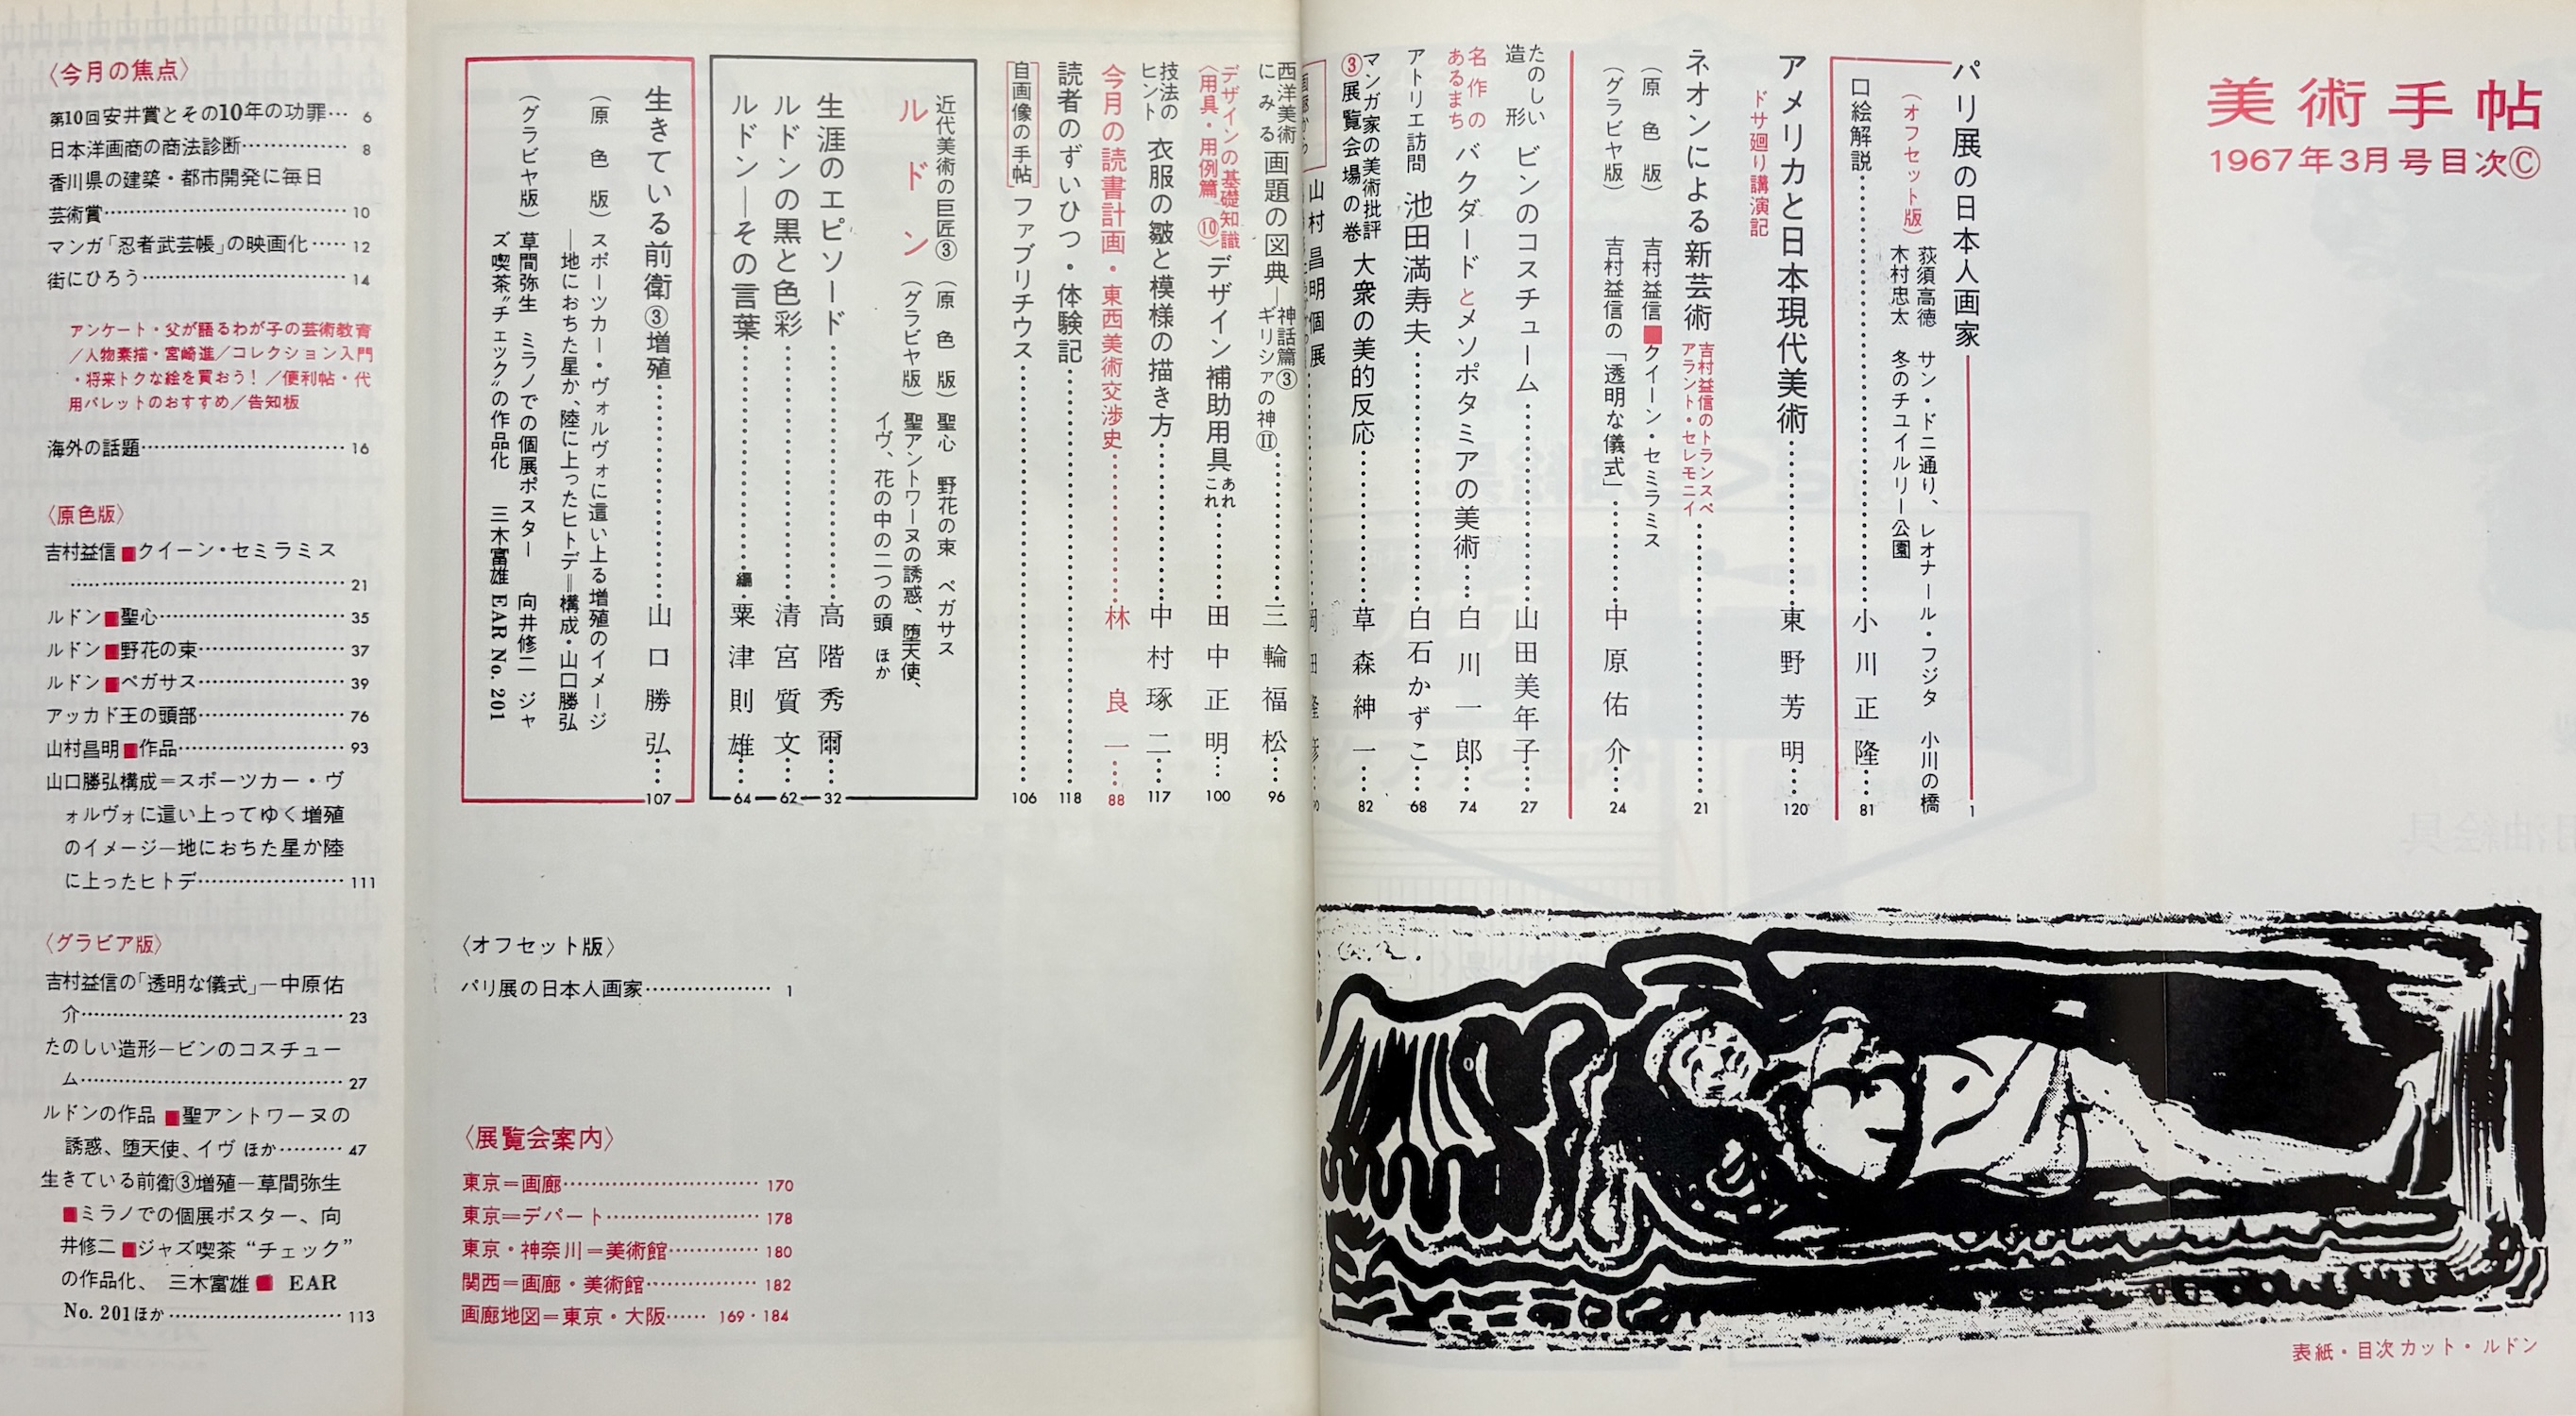 美術手帖
1967年3月号目次Ⓒ
パリ展の日本人画家 1
（オフセット版）
荻須高徳 サン・ドニ通り、レオナール・フジタ 小川の橋
木村忠太 冬のチュイルリー公園
口絵解説 小川正隆 81
アメリカと日本現代美術 東野芳明 120
ドサ廻り講演記
ネオンによる新芸術 吉村益信のトランスペアラント・セレモニイ 21
（原色版） 吉村益信■クイーン・セミラミス
（グラビヤ版） 吉村益信の「透明な儀式」 中原佑介 24
たのしい造形 ビンのコスチューム 山田美年子 27
名作のあるまち バクダードとメソポタミアの美術 白川一郎 74
アトリエ訪問 池田満寿夫 白石かずこ 68
マンガ家の美術批評③展覧会場の巻 大衆の美的反応 草森紳一 82
山村昌明個展
西洋美術にみる 画題の図典―神話篇③ギリシァの神⑪ 三輪福松 96
デザインの基礎知識〈用具・用例篇⑩〉 デザイン補助用具あれこれ 田中正明 100
技法のヒント 衣服の皺と模様の描き方 中村琢二 117
今月の読書計画・東西美術交渉史 林良一 88
読者のずいひつ・体験記 118
自画像の手帖 ファブリチウス 106
近代美術の巨匠③
ルドン
（原色版） 聖心 野花の束 ペガサス
（グラビヤ版） 聖アントワーヌの誘惑、堕天使、
イヴ、花の中の二つの頭 ほか
生涯のエピソード 高階秀爾 32
ルドンの黒と色彩 清宮質文 62
ルドン―その言葉 編 粟津則雄 64
生きている前衛③増殖 山口勝弘 107
（原色版） スポーツカー・ヴォルヴォに這い上る増殖のイメージ
―地におちた星か、陸に上ったヒトデ＝構成・山口勝弘
（グラビヤ版） 草間弥生 ミラノでの個展ポスター 向井修二 ジャ
ズ喫茶〝チェック〟の作品化 三木富雄 EAR No. 201
〈オフセット版〉
パリ展の日本人画家 1
〈展覧会案内〉
東京＝画廊 170
東京＝デパート 178
東京・神奈川＝美術館 180
関西＝画廊・美術館 182
画廊地図＝東京・大阪 169・184
〈今月の焦点〉
第10回安井賞とその10年の功罪… 6
日本洋画商の商法診断 8
香川県の建築・都市開発に毎日
芸術賞 10
マンガ「忍者武芸帳」の映画化 12
街にひろう 14
アンケート・父が語るわが子の芸術教育
／人物素描・宮崎進／コレクション入門
・将来トクな絵を買おう！／便利帖・代
用パレットのおすすめ／告知板
海外の話題 16
〈原色版〉
吉村益信■クイーン・セミラミス
21
ルドン■聖心 35
ルドン■野花の束 37
ルドン■ペガサス 39
アッカド王の頭部 76
山村昌明■作品 93
山口勝弘構成＝スポーツカー・ヴ
ォルヴォに這い上ってゆく増殖
のイメージ―地におちた星か陸
に上ったヒトデ 111
〈グラビア版〉
吉村益信の「透明な儀式」―中原佑
介 23
たのしい造形―ビンのコスチュー
ム 27
ルドンの作品 ■聖アントワーヌの
誘惑、堕天使、イヴ ほか 47
生きている前衛③増殖―草間弥生
■ミラノでの個展ポスター、向
井修二■ジャズ喫茶“チェック”
の作品化、三木富雄■ EAR
No. 201ほか 113
表紙・目次カット・ルドン